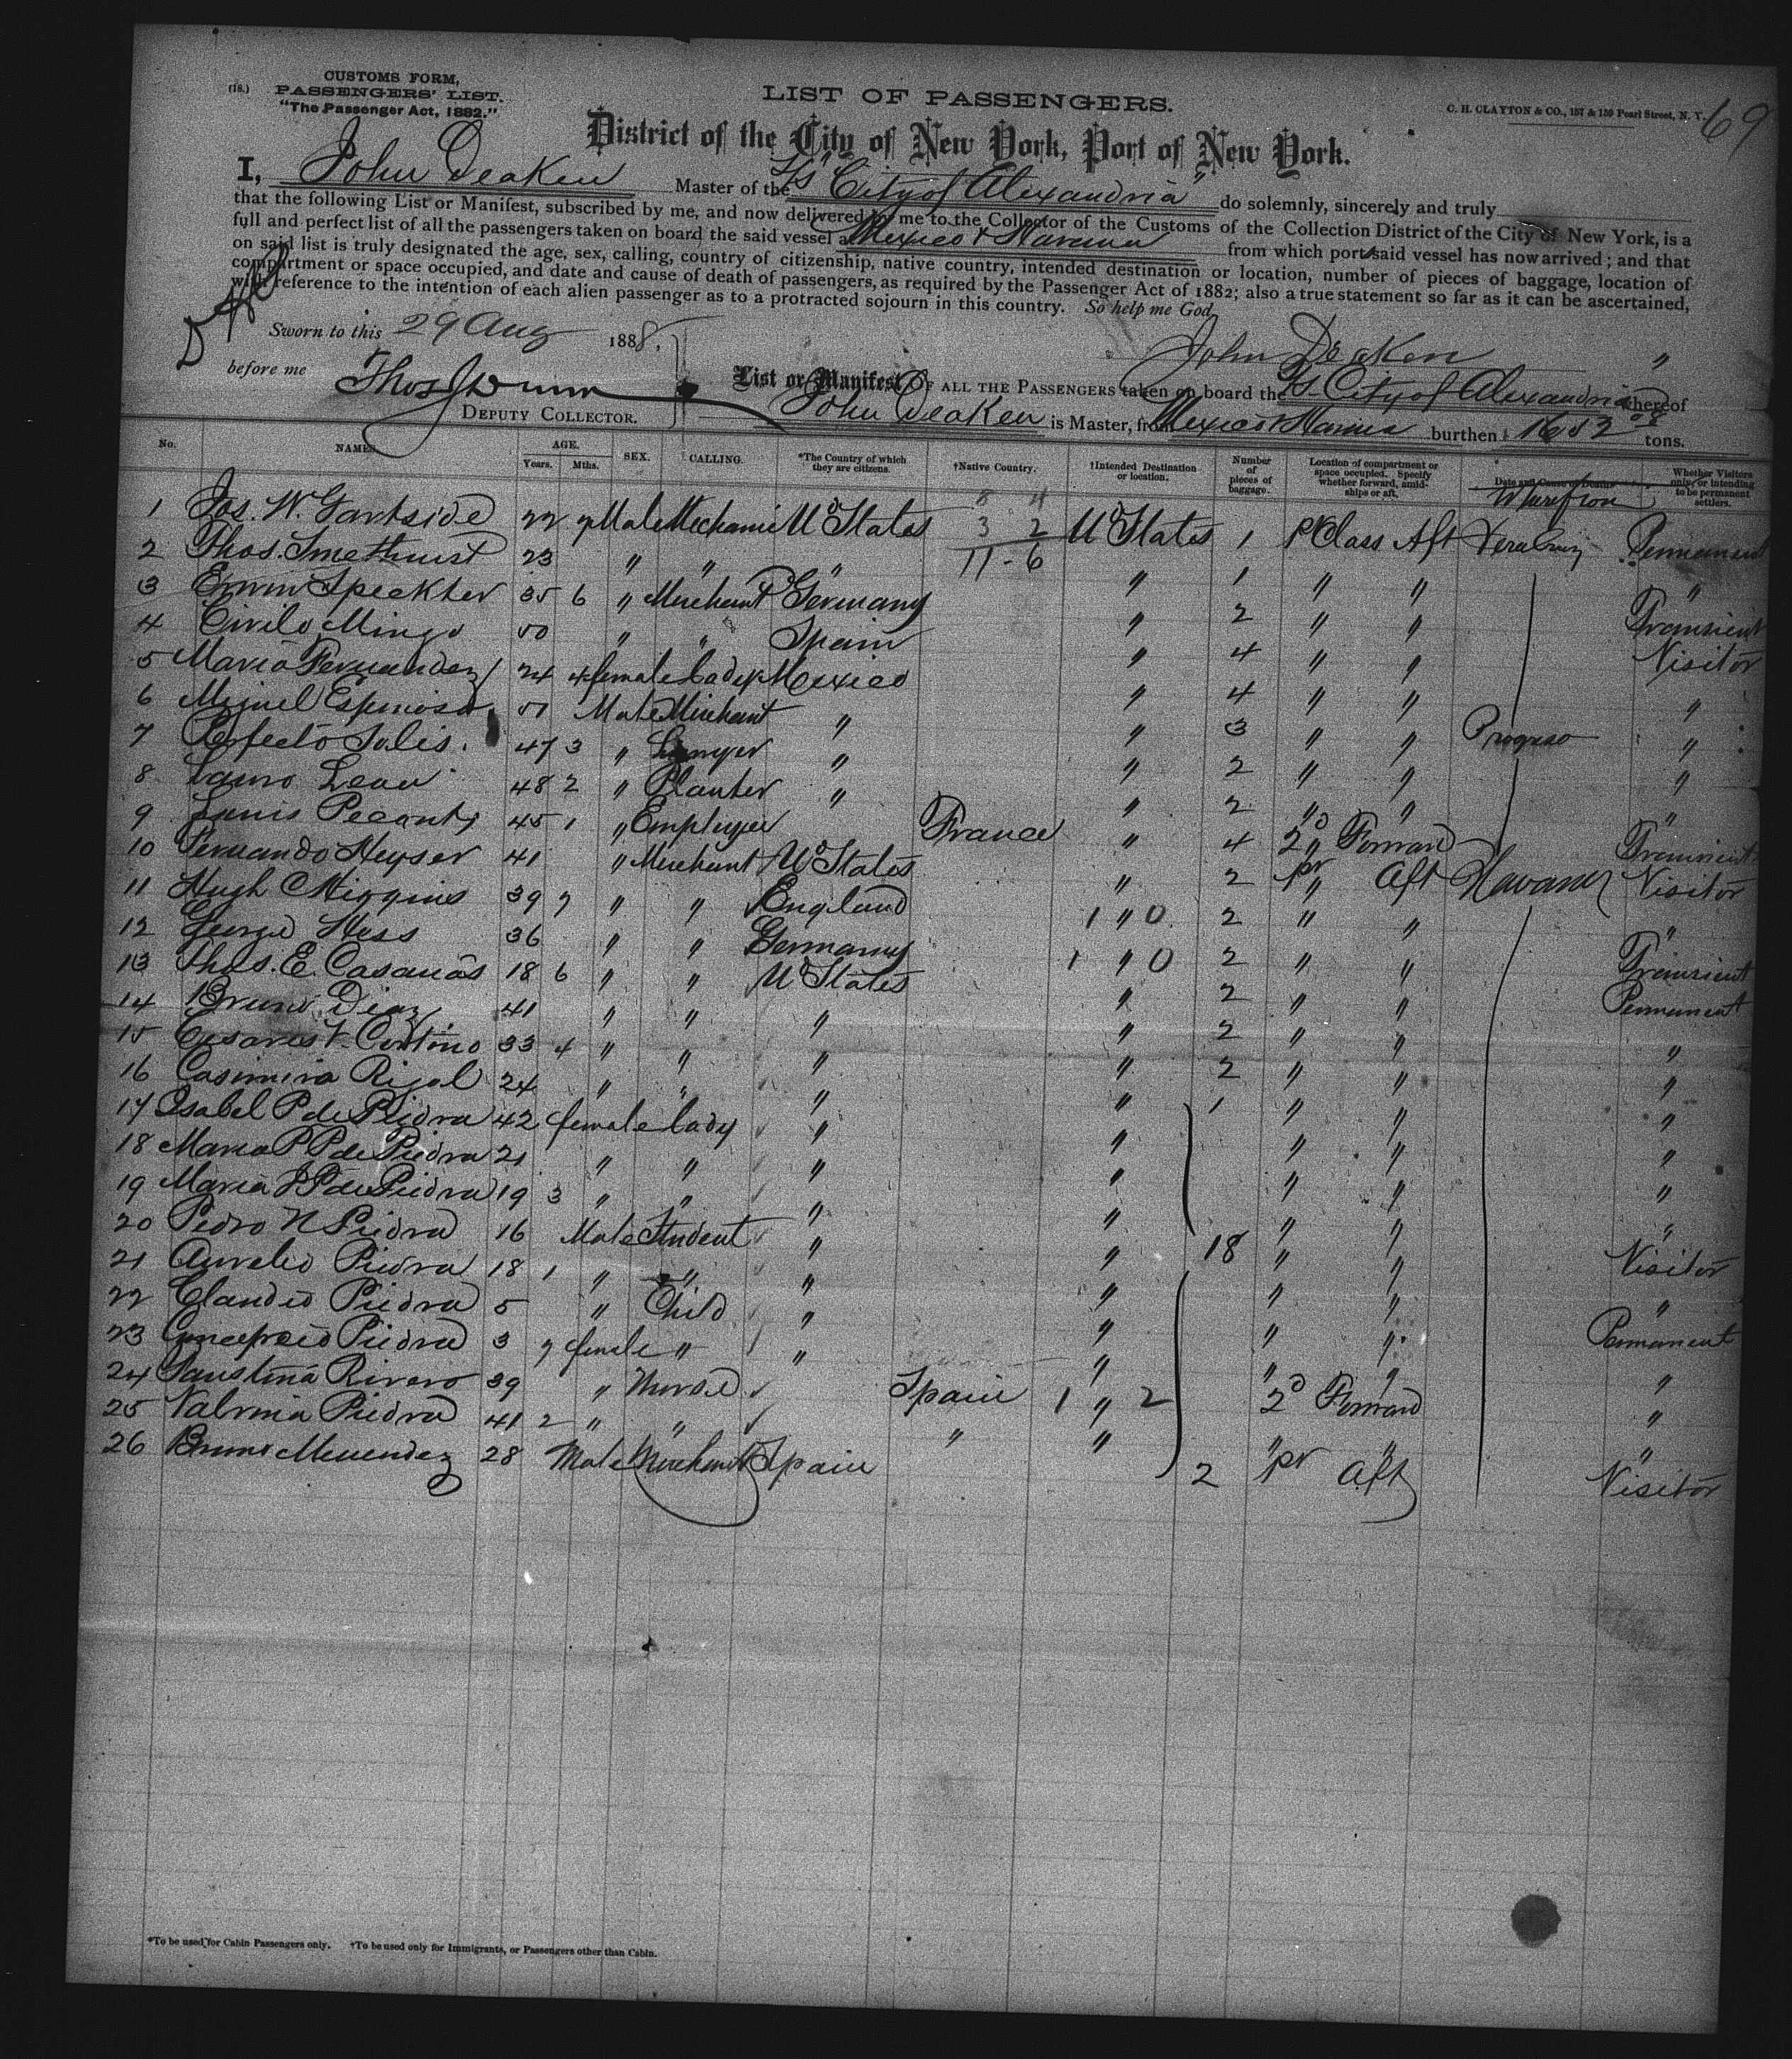 CUSTOMS FORM,
(18.) PASSENGERS' LIST.
"The Passenger Act, 1882."
LIST OF PASSENGERS.
C. H. CLAYTON & CO., 157 & 159 Pearl Street, N. Y.
69
District of the City of New York, Port of New York.
I, John Deaken Master of the S/s "City of Alexandria" do solemnly, sincerely and truly
that the following List or Manifest, subscribed by me, and now delivered by me to the Collector of the Customs of the Collection District of the City of New York, is a
full and perfect list of all the passengers taken on board the said vessel at Mexico & Havana from which port said vessel has now arrived; and that
on said list is truly designated the age, sex, calling, country of citizenship, native country, intended destination or location, number of pieces of baggage, location of
compartment or space occupied, and date and cause of death of passengers, as required by the Passenger Act of 1882; also a true statement so far as it can be ascertained,
with reference to the intention of each alien passenger as to a protracted sojourn in this country. So help me God
Sworn to this 29 Aug 1888,
John Deaken
before me Thos J Dunn
DEPUTY COLLECTOR.
List or Manifest OF ALL THE PASSENGERS taken on board the S/s City of Alexandria whereof
John Deaken is Master, from Mexico & Havana burthen 1652 tons.
No. NAMES. AGE. Years. Mths. SEX. CALLING. *The Country of which they are citizens. †Native Country. †Intended Destination or location. Number of pieces of baggage. Location of compartment or space occupied. Specify whether forward, amidships or aft. Date and Cause of Death. Where from Whether Visitors only, or intending to be permanent settlers.
8 4
3 2
11 - 6
1 Jos. W. Gartside 22 7 Male Mechanic U States U States 1 pr Class Aft Vera Cruz Permanent
2 Thos. Smethurst 23 " " " " 1 " " "
3 Erwin Speckter 35 6 " Merchant Germany " 2 " " Transient
4 Cirilo Mingo 50 " " Spain " 4 " " Visitor
5 Maria Fernandez 24 4 female Lady Mexico " 4 " " "
6 Miguel Espinosa 51 Male Merchant " " 3 " " Progreso "
7 Perfecto Solis. 47 3 " Lawyer " " 2 " " "
8 Leon 48 2 " Planter " " 2 " " "
9 Louis 45 1 " Employee France " 4 2d Forward Transient
10 Fernando Heyser 41 " Merchant U States " 2 pr Aft Havana Visitor
11 Hugh C Higgins 39 7 " " England 1 " 0 2 " " "
12 George Hess 36 " " Germany 1 " 0 2 " " Transient
13 Thos. E. Casanas 18 6 " " U States " 2 " " Permanent
14 Bruno Diaz 41 " " " " 2 " " "
15 33 4 " " " " 2 " " "
16 Casimira Rigal 24 " " " " 1 " " "
17 Isabel P de Piedra 42 female Lady " " " " "
18 Maria P P de Piedra 21 " " " " " " "
19 Maria P de Piedra 19 3 " " " " " " "
20 Pedro N Piedra 16 Male Student " " 18 " " Visitor
21 Aurelio Piedra 18 1 " " " " " " "
22 Claudio Piedra 5 " Child " " " " Permanent
23 Piedra 3 7 female " " " " " "
24 Faustina Rivero 39 " Nurse Spain 1 " 2 2d Forward "
25 Piedra 41 2 " " " " " " "
26 Bruno Menendez 28 Male Merchant Spain 2 pr Aft Visitor
*To be used for Cabin Passengers only. †To be used only for Immigrants, or Passengers other than Cabin.